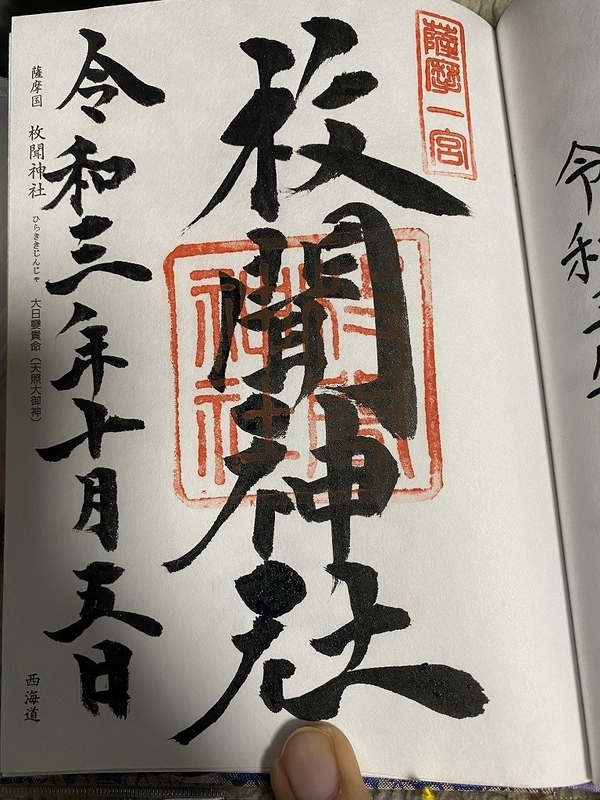 薩摩一宮
枚聞神社
令和三年十月五日
薩摩国 枚聞神社 ひらききじんじゃ 大日孁貴命(天照大御神) 西海道
令和三年